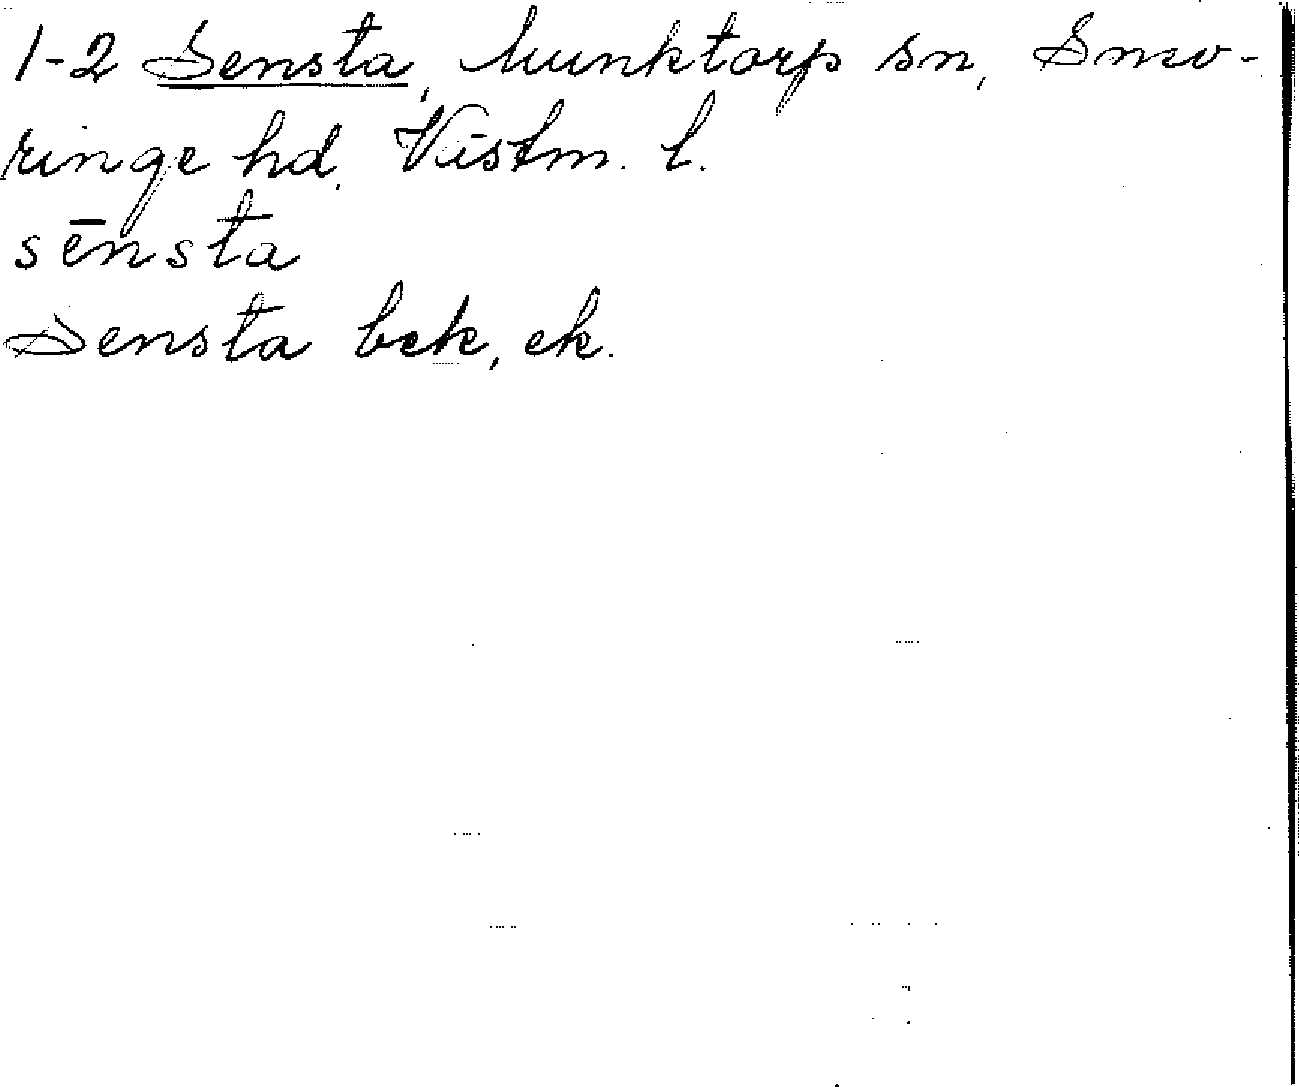 1-2 Sensta, Munktorp sn, Snev-
ringe hd. Västm. l.
sēnsta
Sensta bek, ek.